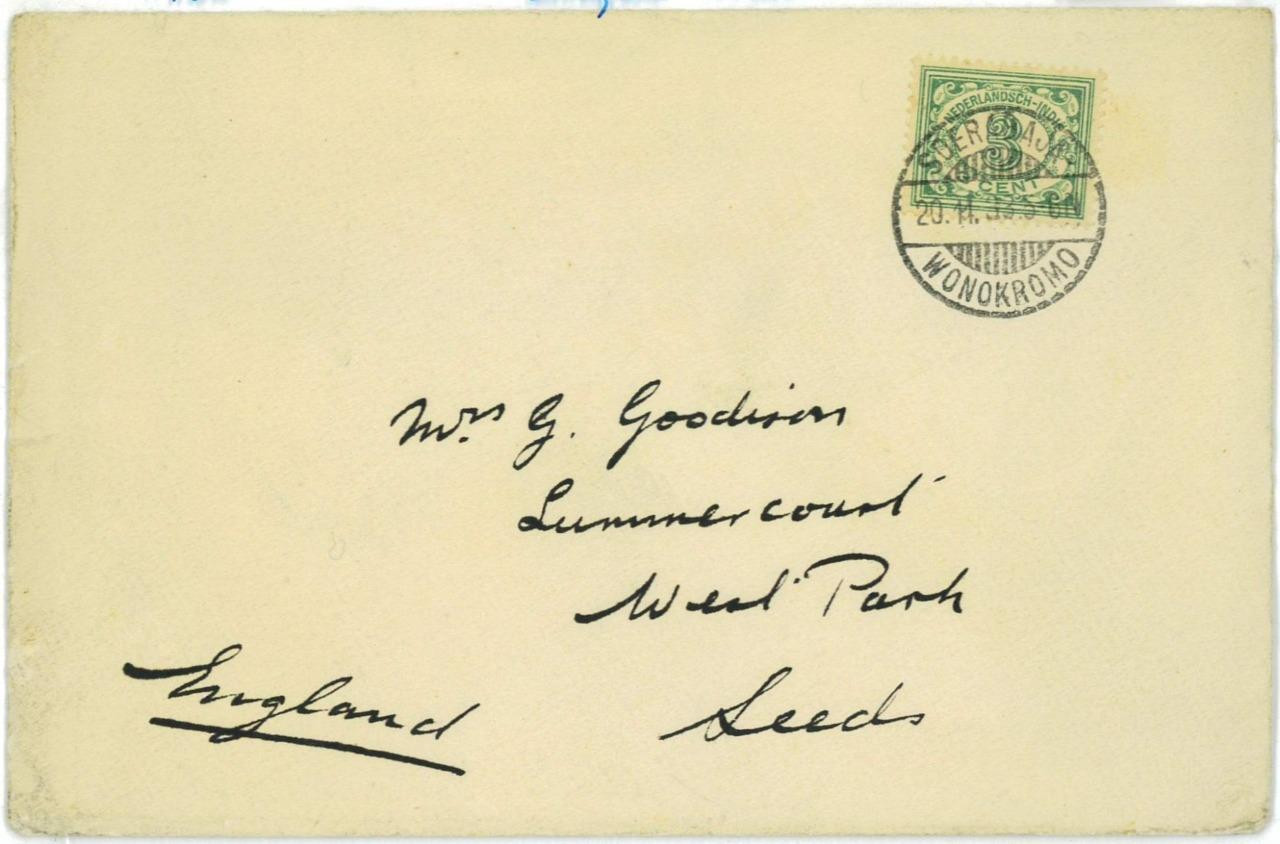 NEDERLANDSCH-INDIË
3
CENT
20.11.
WONOKROMO
Mrs G. Goodison
Summercourt
West Park
Leeds
England